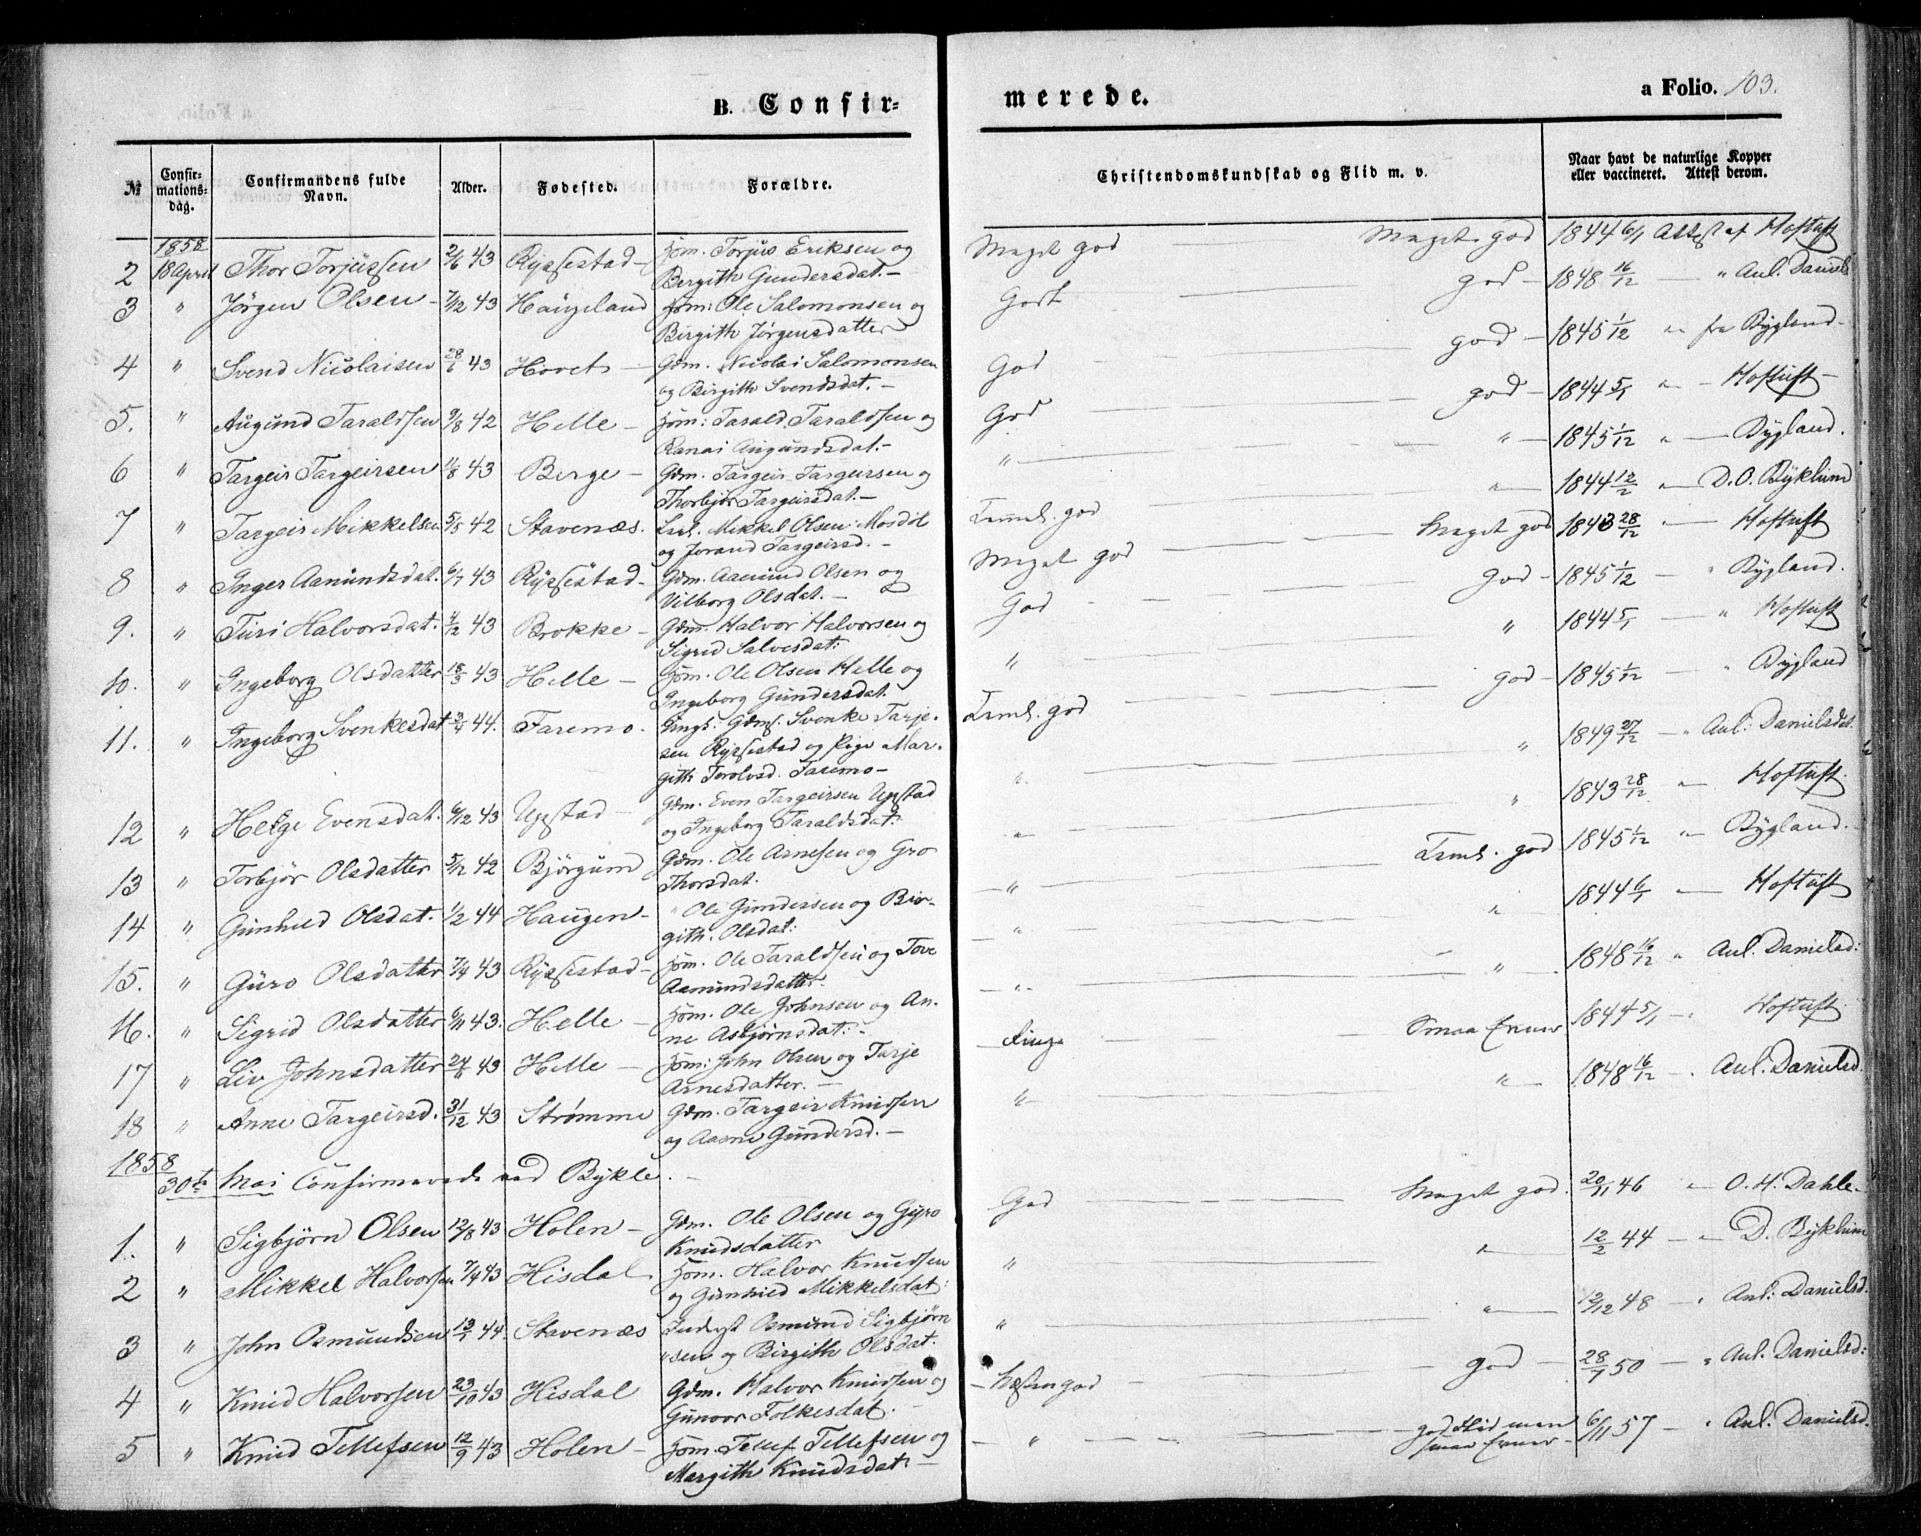 B. Confir-
merede.
a Folio. 103.
№
Confir-
mations-
dag.
Confirmandens fulde
Navn.
Alder.
Fødested.
Forældre.
Christendomskundskab og Flid m. v.
Naar havt de naturlige Kopper
eller vaccineret. Attest derom.
1858
2 18 April Thor Torjussen 2/6 43 Rysestad – Hm. Torjus Eriksen og Bergith Gundersdat. – Meget god Meget god 1844 6/1 Attest af Hoftuft
3 " Jörgen Olsen – 7/12 43 Haugeland Hm: Ole Salomonsen og Birgith Jørgensdatter Godt god – 1848 16/12 – " Anl. Daniels
4 " Svend Nicolaisen 28/6 43 Hovet – Gdm. Nicolai Salomonsen og Birgith Svendsdat. – God god – 1845 1/12 " fra Bygland –
5. " Augund Taraldsen 9/8 42 Helle – Hm: Tarald Taraldsen og Ranai Augundsdat. – God god – 1844 5/1 " – Hoftuft –
6 " Targeir Targeirsen 1/8 43 Berge – Gdm. Targeir Targeirsen og Thorbjør Targeirsdat. – " " – 1845 1/12 " – Bygland.
7 " Targeir Mikkelsen 5/5 42 Stavenæs. Mikkel Olsen Mosdöl og Jorand Targeirsd. – Teml. god " – 1844 12/2 " D. O. Byklum
8 " Inger Aanundsdat. 6/7 43 Rysestad – Gdm. Aanund Olsen og Vilborg Olsdat. – Meget god Meget god 1843 28/12 " – Hoftuft
9. " Turi Halvorsdat. 4/12 43 Brokke – Gdm. Halvor Halvorsen og Sigrid Salvesdat: God god – 1845 1/12 – " Bygland.
10. " Ingeborg Olsdatter 18/3 43 Helle – Hm. Ole Olsen Helle og Ingeborg Gundersdat. " " 1844 5/1 – " Hoftuft
11. " Ingeborg Svenkesdat 3/4 44. Faremo. Gdms. Svenke Tarje-
sen Rysestad og Pige Mar-
gith Torolvsd. Faremo – Teml. god god – 1845 1/12 – " Bygland
12 " Helge Evensdat. 6/12 43 Upstad – Gdm. Even Targeirsen Upstad og Ingeborg Taraldsdat: " " 1849 27/12 – " Anl: Danielsdat.
13 " Torbjør Olsdatter 5/12 42 Björgum Gdm. Ole Arnesen og Gro Thorsdat. " " 1843 28/12 " Hoftuft.
14 " Gunhild Olsdat. 1/2 44 Haugen – " Ole Gundersen og Bir-
gith. Olsdat: – " Teml. god 1845 1/12 " Bygland. –
15. " Guro Olsdatter 7/4 43 Rysestad – Hm. Ole Taraldsen og Tove Aamundsdatter. – " " 1844 6/1 – Hoftuft
16. " Sigrid Olsdatter 6/11 43. Helle – Hm. Ole Johnsen og An-
ne Asbjørnsdat: – – " " 1848 16/12 " Anl. Danielsd:
17 " Liv Johnsdatter 24/11 43 Helle – Hm: John Olsen og Tarje Arnesdatter. – Ringe Smaa Evner 1844 5/1 – Hoftuft
18 " Anne Targeirsd. 31/12 43 Strømme Gdm. Targeir Knudsen og Aasne Gundersd. – " " 1848 16/12 – Anl. Danielsd.
1858
30te Mai Confirmerede ved Bykle.
1. " Sigbjørn Olsen 12/8 43 Holen – Gdm. Ole Olsen og Gyro Knudsdatter God Meget god. 20/11 46 " O. H. Dahle –
2 " Mikkel Halvorsen 7/4 43 Hisdal Hm. Halvor Knudsen og Gunhild Mikkelsdat: " " 12/2 44 – " D. Byklum
3 " John Osmundsen 13/1 44. Stavenæs Inderst Osmund Sigbjørn
sen og Birgith Olsdat. " " 13/12 48 – Anl: Danielsd.
4 " Knud Halvorsen 23/10 43 Hisdal Gdm. Halvor Knudsen og Gunvor Folkesdat. – Næsten god god – 28/7 50 – " Anl. Danielsd:
5 " Knud Tellefsen 12/9 43 Holen – Hm. Tellef Tellefsen og Margith Knudsdat: – – " god Flid men
smaa Evner – 6/11 57 – " Anl. Danielsd.